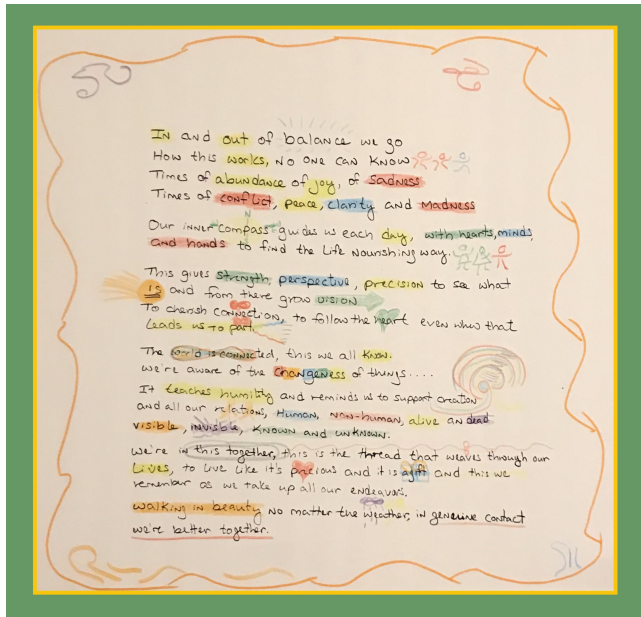 In and out of balance we go
How this works, no one can know
Times of abundance of joy, of sadness
Times of conflict, peace, clarity and madness
Our inner compass guides us each day, with hearts, minds,
and hands to find the life nourishing way.
This gives strength, perspective, precision to see what
is and from there grow vision
To cherish connection, to follow the heart even when that
leads us to part.
The world is connected, this we all know.
We're aware of the changeness of things....
It teaches humility and reminds us to support creation
and all our relations, Human, non-human, alive an dead
visible, invisible, known and unknown.
We're in this together, this is the thread that weaves through our
lives, to live like it's precious and it is a gift and this we
remember as we take up all our endeavors.
Walking in beauty no matter the weather, in genuine contact
we're better together.